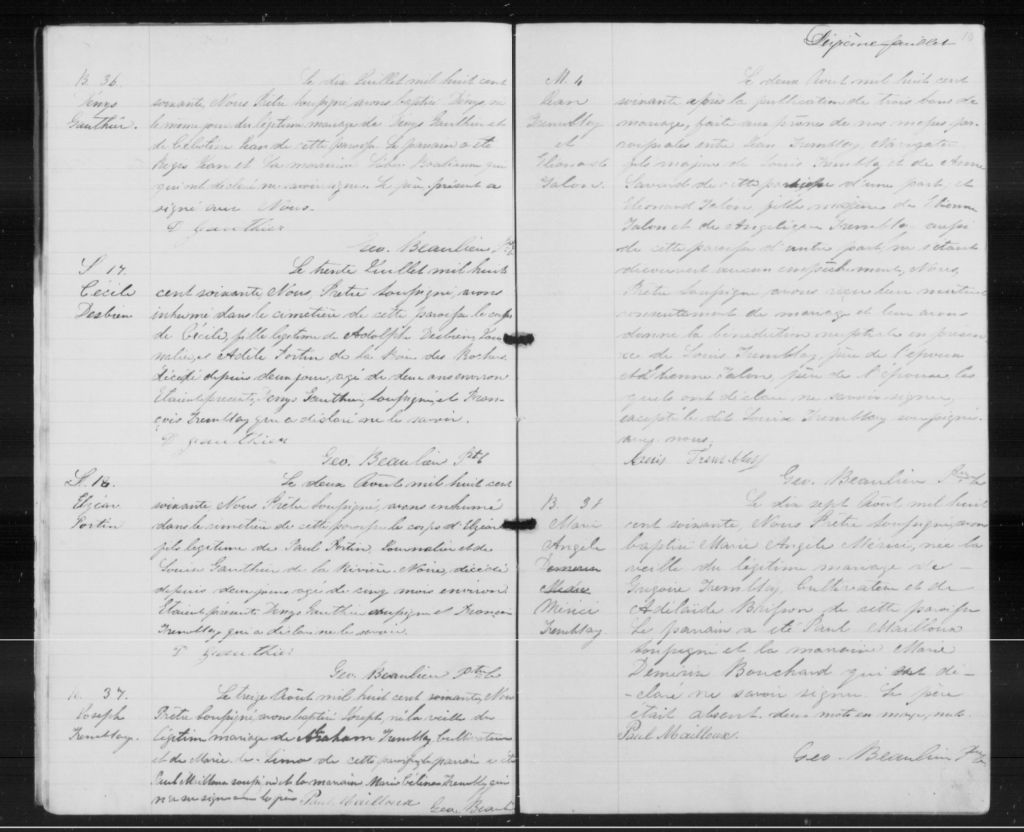 B. 36.
Denys
Gauthier.
Le dix Juillet mil huit cent
soixante Nous Prêtre soussigné avons baptisé Denys, né
le même jour du légitime mariage de Denys Gauthier et
de Jean de cette paroisse Le parrain a été
Jean et La marraine
qui ont déclaré ne savoir signer. Le père présent a
signé avec Nous.
D Gauthier
Geo. Beaulieu Ptre
S. 17.
Cécile
Desbien
Le trente Juillet mil huit
cent soixante, Nous, Prêtre soussigné, avons
inhumé dans le cimetière de cette paroisse le corps
de Cécile, fille légitime de Adolphe Desbiens, Jour
nalier, et Adèle Fortin de la des Roches
décédé depuis deux jours, agé de deux ans environ
Etaient présents, Denys Gauthier, soussigné, et Fran-
çois Tremblay qui a déclaré ne le savoir.
D Gauthier
Geo. Beaulieu Ptre
S. 18.
Elzéar
Fortin
Le deux Août mil huit cent
soixante Nous Prêtre soussigné, avons inhumé
dans le cimetière de cette paroisse le corps d'Elzéar
fils légitime de Paul Fortin, Journalier et de
Louise Gauthier de la Rivière-Noire, décédé
depuis deux jours agé de cinq mois environ
Etaient présents Denys Gauthier soussigné et François
Tremblay qui a déclaré ne le savoir.
D Gauthier
Geo. Beaulieu Ptre
B. 37.
Joseph
Tremblay.
Le treize Août mil huit cent soixante, Nous
Prêtre soussigné, avons baptisé Joseph, né la veille du
légitime mariage de Abraham Tremblay Cultivateur
et de Marie de Simas de cette paroisse le parrain a été
Paul Mailloux soussigné et la marraine Marie Tremblay qui
n'a su signer le père Paul Mailloux Geo. Beaul
Dixième feuillet
10
M. 4
Jean
Tremblay
et
Eléonard
Talon.
Le deux Août mil huit cent
soixante après la publication de trois bans de
mariage, faite aux prônes de nos messes pa-
roissiales entre Jean Tremblay, Navigateur
fils majeur de Louis Tremblay et de
Savard de cette paroisse d'une part; et
Eléonard Talon fille majeure de Etienne
Talon et de Angélique Tremblay aussi
de cette paroisse d'autre part ne s'étant
découvert aucun empêchement, Nous,
Prêtre soussigné avons reçu leur mutuel
consentement de mariage et leur avons
donné la bénédiction nuptiale en présen
ce de Louis Tremblay, père de l'époux
et Etienne Talon, père de l'épouse les
quels ont déclaré ne savoir signer,
excepté le dit Louis Tremblay soussigné
avec nous.
Tremblay
Geo. Beaulieu Ptre
B. 31
Marie
Angèle
Demerise
Mérici
Tremblay
Le dix sept Août mil huit
cent soixante, Nous Prêtre soussigné, avons
baptisé Marie Angèle Mérici, née la
veille du légitime mariage de -
Grégoire Tremblay, Cultivateur et de
Adélaide Brisson de cette paroisse
Le parrain a été Paul Mailloux
soussigné et la marraine Marie
Demerise Bouchard qui ont dé-
-claré ne savoir signer. Le père
était absent. deux mots en marge, nuls.
Paul Mailloux.
Geo. Beaulieu Ptre